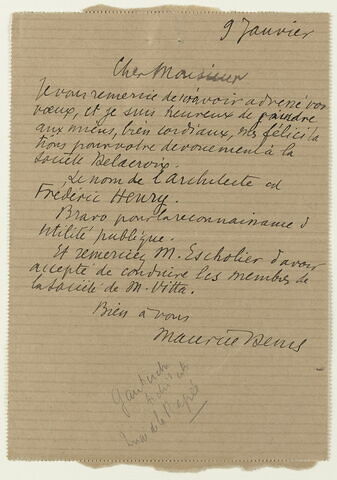 9 Janvier
Cher Monsieur
Je vous remercie de m'avoir adressé vos
voeux, et je suis heureux de joindre
aux miens, bien cordiaux, mes félicita
tions pour votre dévouement à la
Société Delacroix.
Le nom de l'architecte est
Frédéric Henry.
Bravo pour la reconnaissance d'
utilité publique.
Et remerciez M. Escholier d'avoir
accepté de conduire les membres de
la Société de M. Vitta.
Bien à vous
Maurice Denis